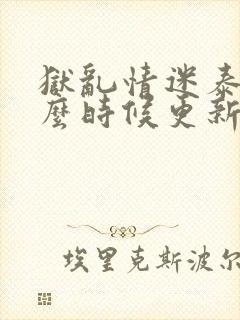 獄亂情迷泰
麼時候更新
埃里克斯波尔